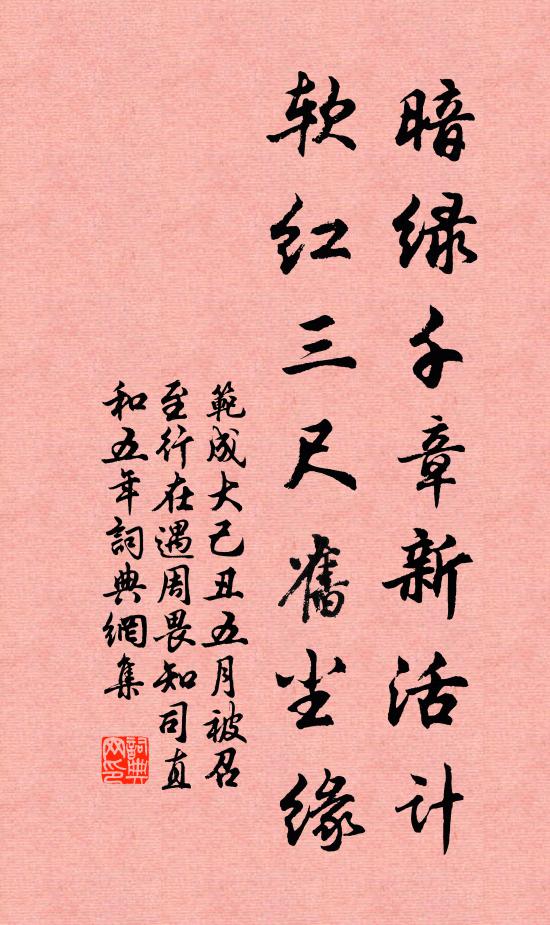 暗绿千章新活计
软红三尺舊尘缘
範成大己丑五月被召
至行在遇周畏知司直
和五年詞典網集
詞典网印